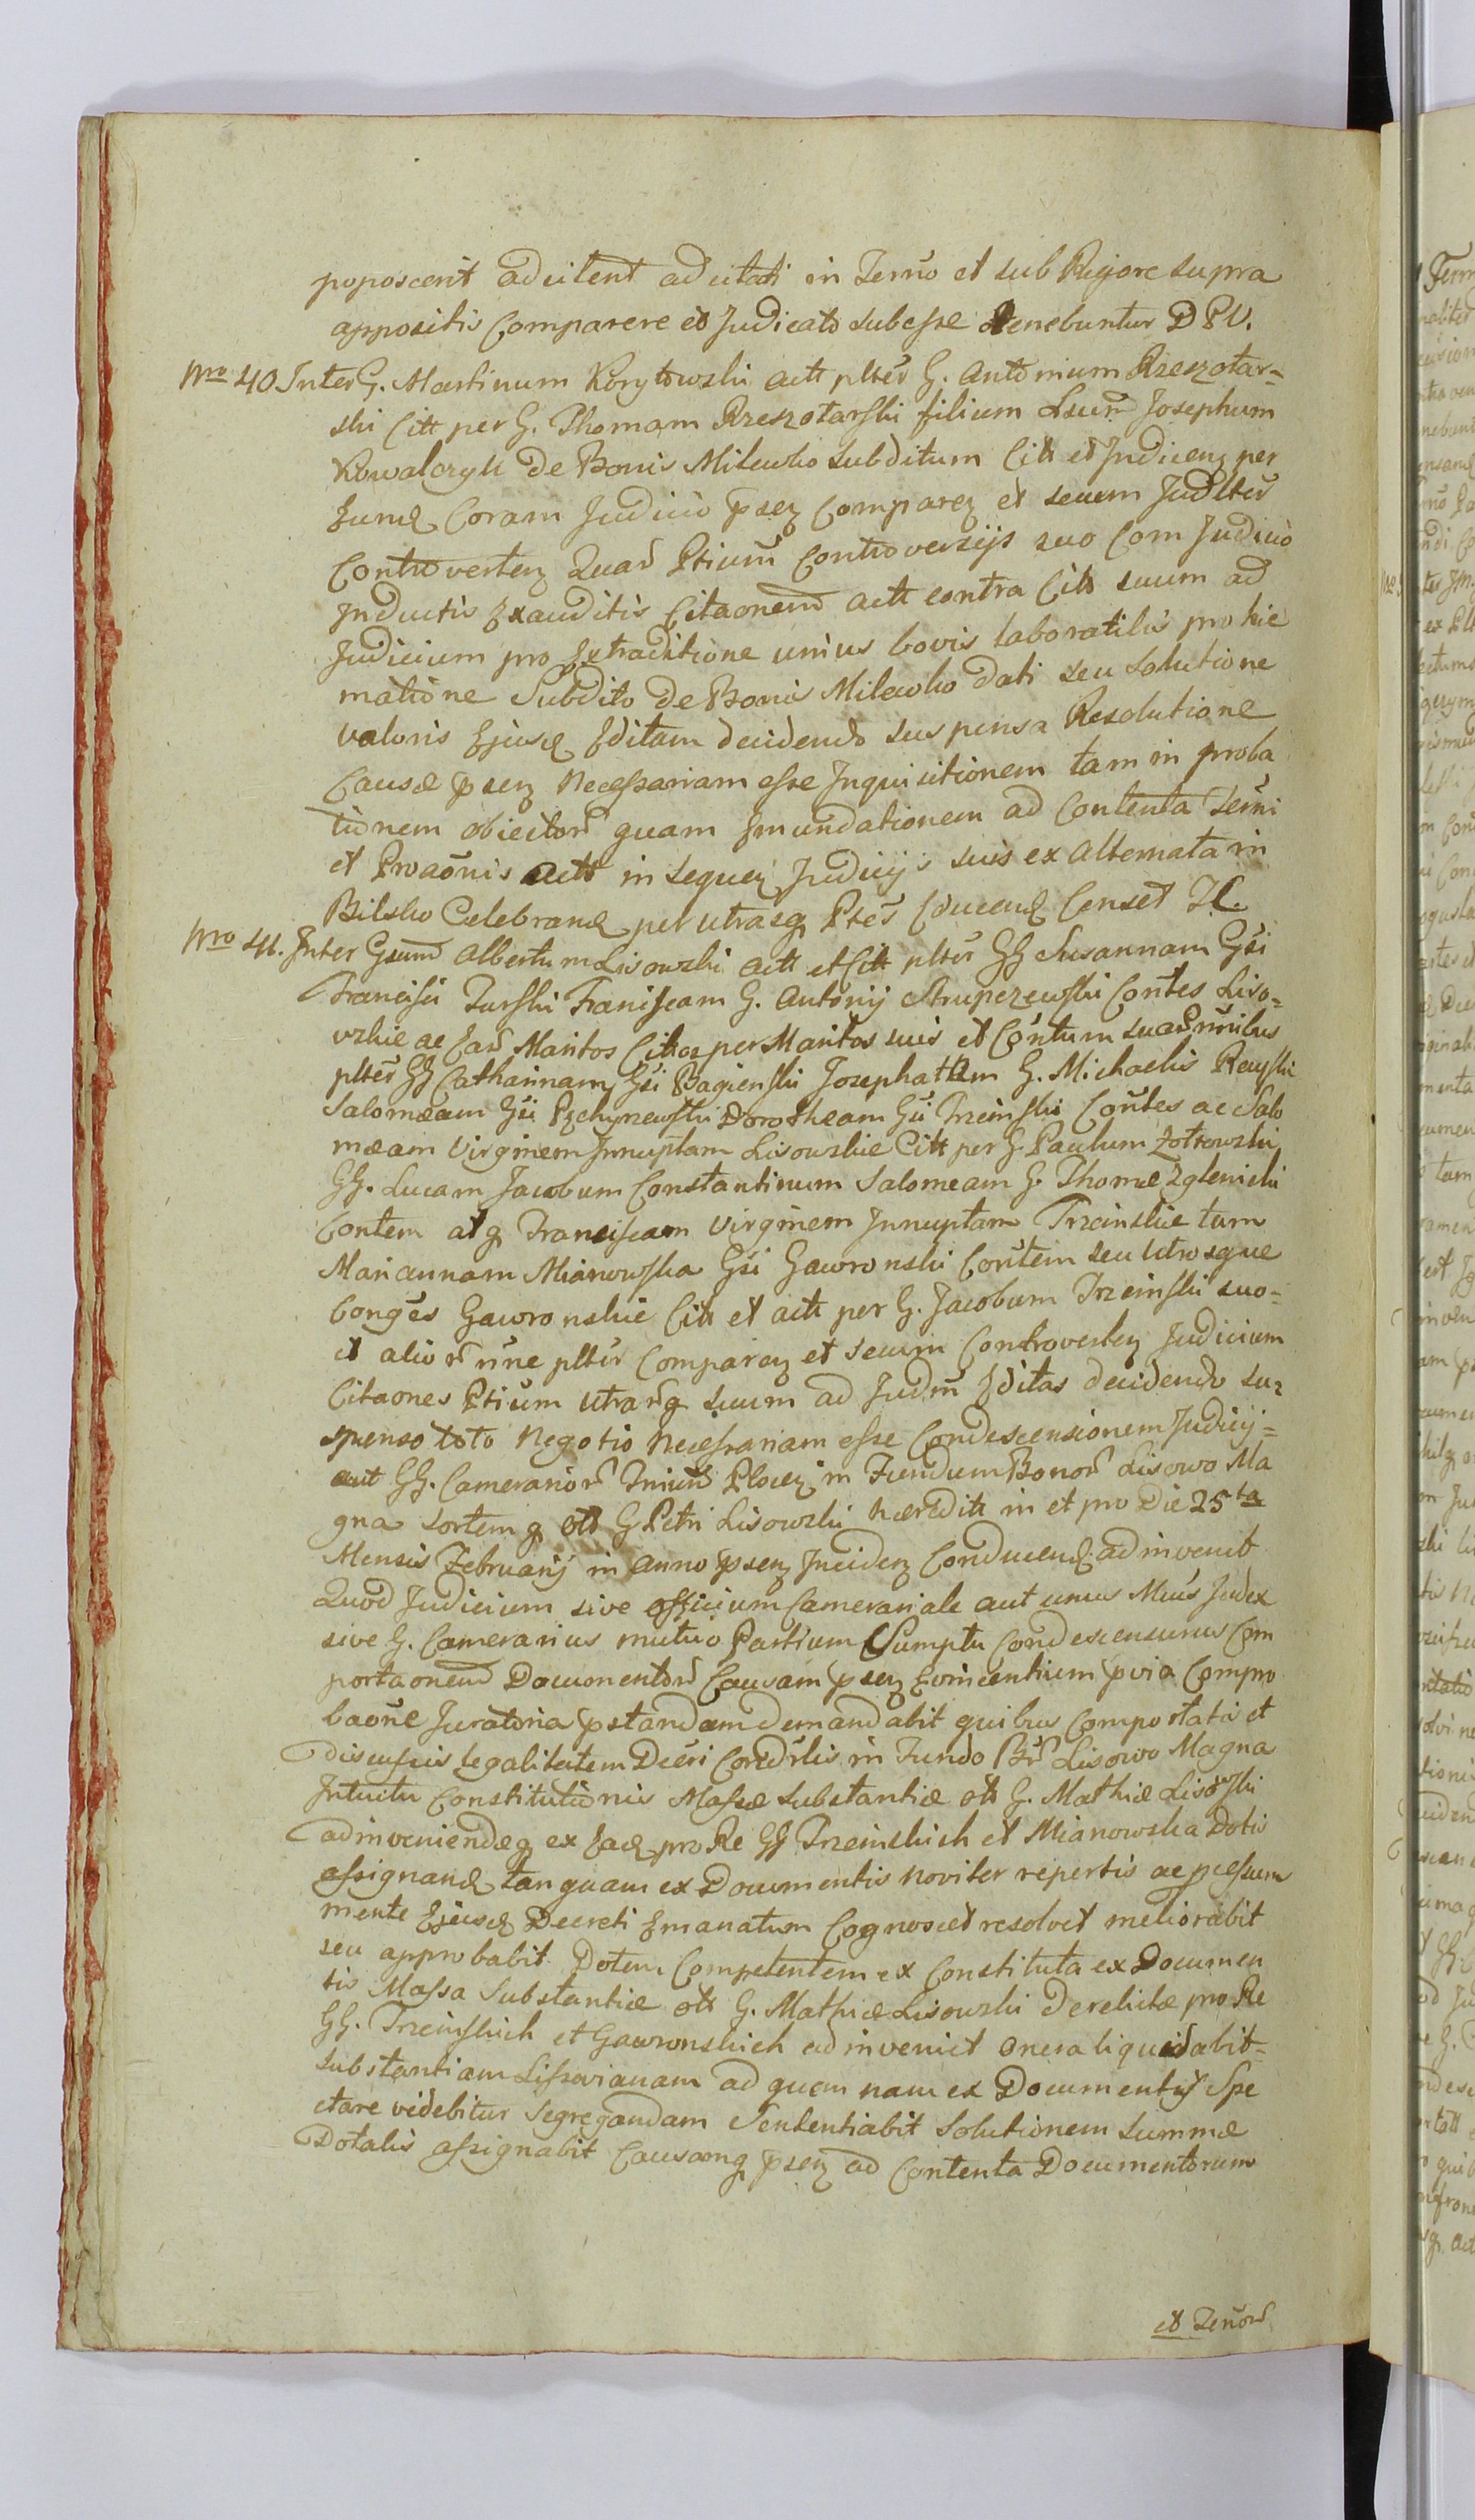 poposcerit adcitent adcitati in Termo et sub Rigore supra
appositis Comparere et Judicato subesse tenebuntur DPV.
Nro 40. Inter G. Martinum Korytowski actt plter G. Antonium Rzeszotar=
ski Citt per G. Thomam Rzeszotarski filium Suum Josephum
Kowalczyk de Bonis Milewko subditum Citt et Judicenz per
Eund Coram Judicio psez Comparez et secum Judlter
Controvertez Quar Ptium Controversijs suo Com Judicio
Inductis Exauditis Citaonem actt contra Citt suum ad
Judicium pro Extraditione unius bovis laboratilis pro hie
matione Subdito de Bonis Milewko dati seu Solutione
valoris Ejusd Editam decidendo suspensa Resolutione
Causæ psez Necessariam esse Inquisitionem tam in proba
tionem obiector quam Emundationem ad Contenta Termi
et Proaonis actt in sequez Judicijs suis ex alternata in
Bilsko Celebrand per utrasq Ptes Educend Censet JC.
Nro 41. Inter Gsum Albertum Lisowski actt et Citt plter GG Susannam Gsi
Francisci Turski Franciscam G. Antonij Strupczewski Contes Liso=
wskie ac Ear Maritos Cittos per Maritos suis et Contum suar nnibus
plter GG Catharinam Gsi Bagienski Josephattam G. Michaelis Reyski
Salomeam Gsi Pchynewski Dorotheam Gsi Trzcinski Contes ac Salo
meam Virginem Innuptam Lisowskie Citt per G Paulum Zotkowski
GG. Lucam Jacobum Constantinum Salomeam G. Thomæ Zglenicki
Contem atq Franciscam Virginem Innuptam Trzcinskie tum
Mariannam Mianowska Gsi Gawronski Contem seu Utrosque
Conges Gawronskie Citt et actt per G. Jacobum Trzcinski suo=
et alior nne plter Comparez et secum Controvertez Judicium
Citaones Ptium Utrarq suum ad Judm Editas decidendo su=
spenso toto Negotio Necessariam esse Condescensionem Judicij=
aut GG. Camerarior Tnium Plocez in Fundum Bonor Lisowo Ma
gna Sortemq ott G Petri Lisowski hæreditt in et pro Die 25ta
Mensis Februarij in anno psez Incidez Conducend adinvenit
Quod Judicium sive officium Camerariale aut unus Mnus Judex
sive G. Camerarius mutuo Partium Sumptu Condescensurus Com
portaonem Documentor Causam psez Evincentium pvia Compro
baone Juratoria pstandam demandabit quibus Comportatis et
discussis legalitatem Decri Condrlis in Fundo Br Lisowo Magna
Intuitu Constitutionis Massæ Substantiæ ott G. Mathiæ Lisowski
adinveniendæq ex Ead pro Re GG Trzcinskich et Mianowska Dotis
assignand tanquam ex Documentis noviter repertis ac
mente Ejusd Decreti Emanatum Cognoscet resolvet meliorabit
seu approbabit Dotem Competentem ex Constituta ex Documen
tis Massa Substantiæ ott G. Mathiæ Lisowski derelictæ pro Re
GG. Trzcinskich et Gawronskich adinveniet onera liquidabit=
substantiam Lissovianam ad quem nam ex Documentis Spe
ctare videbitur segregandam Sententiabit Solutionem Summæ
Dotalis assignabit Causamq psez ad Contenta Documentorum
et Tenor